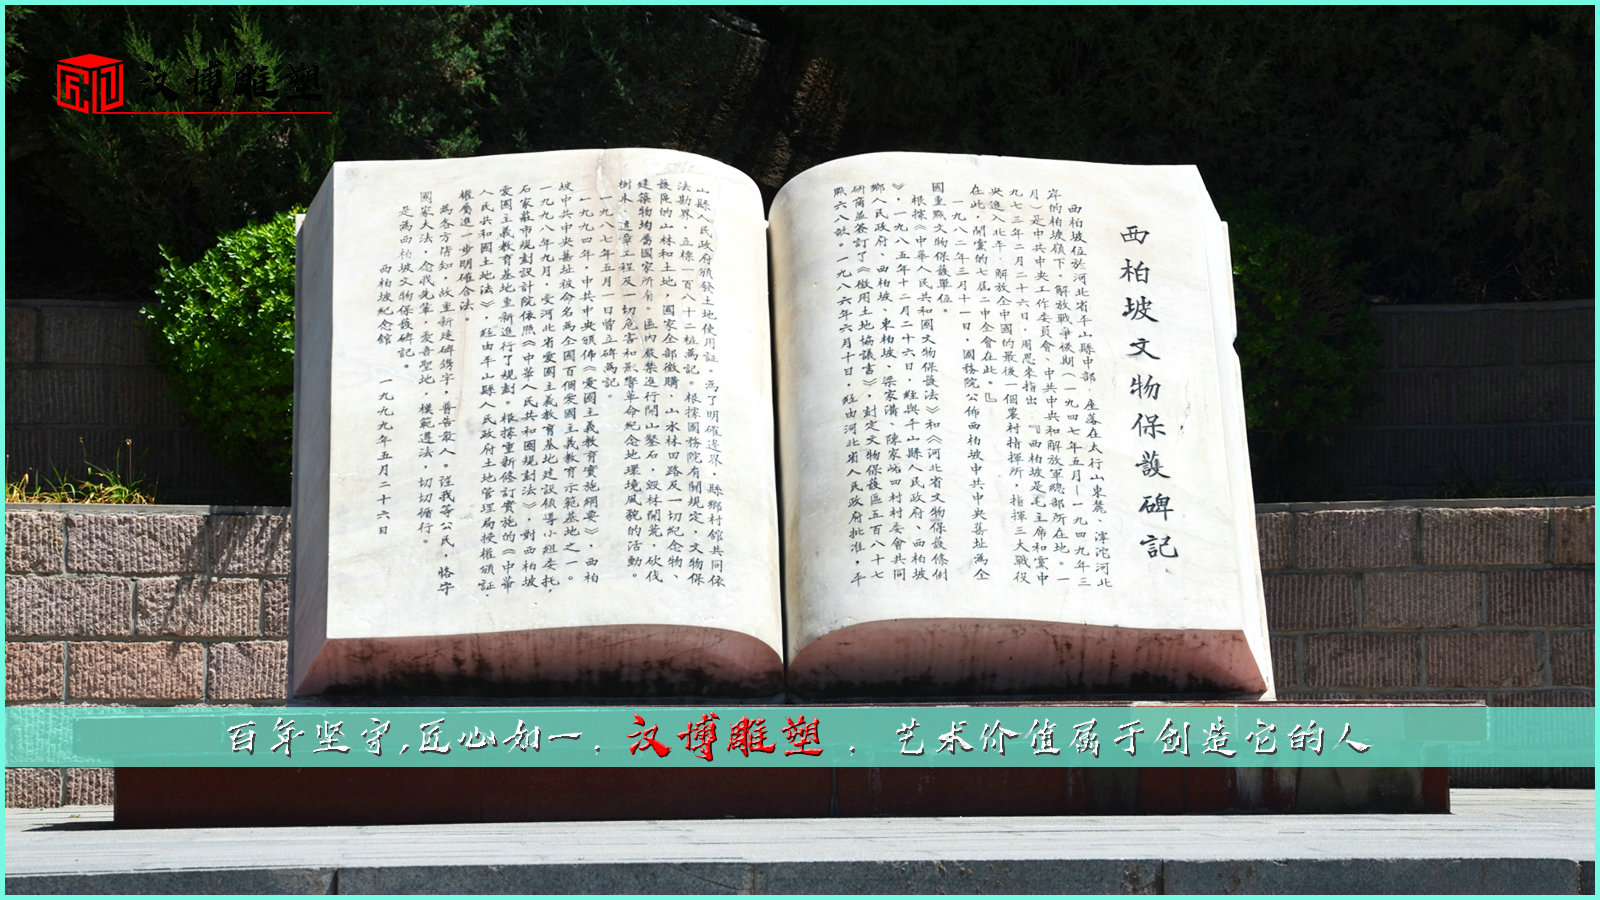 汉博雕塑
西柏坡文物保護碑記
西柏坡位於河北省平山縣中部,座落在太行山東麓、滹沱河北
岸的柏坡嶺下。解放戰爭後期(一九四七年五月—一九四九年三
月)是中共中央工作委員會、中共中央和解放軍總部所在地。一
九七三年二月二十六日,周恩來指出:『西柏坡是毛主席和黨中
央進入北平,解放全中國的最後一個農村指揮所,指揮三大戰役
在此,開黨的七屆二中全會在此。』
一九八二年三月十一日,國務院公佈西柏坡中共中央舊址為全
國重點文物保護單位。
根據《中華人民共和國文物保護法》和《河北省文物保護條例
》,一九八五年十二月二十六日,經與平山縣人民政府、西柏坡
鄉人民政府、西柏坡、東柏坡、梁家溝、陳家峪四村村委會共同
研商並簽訂了《徵用土地協議書》,封定文物保護區五百八十七
點六八畝。一九八六年六月十日,經由河北省人民政府批准,平
山縣人民政府頒發土地使用証。為了明確邊界,縣鄉村館共同依
法勘界,立標一百八十二樁為記。根據國務院有關規定,文物保
護區的山林和土地,國家全部徵購,山水林田路及一切紀念物、
建築物均屬國家所有。區內嚴禁進行開山鑿石,毀林開荒,砍伐
樹木,違章工程及一切危害和影響革命紀念地環境風貌的活動。
一九八七年五月一日曾立碑為記。
一九九四年,中共中央頒佈《愛國主義教育實施綱要》,西柏
坡中共中央舊址被命名為全國百個愛國主義教育示範基地之一。
一九九八年九月,受河北省愛國主義教育基地建設領導小組委托,
石家莊市規劃設計院依照《中華人民共和國規劃法》,對西柏坡
愛國主義教育基地重新進行了規劃。根據重新修訂實施的《中華
人民共和國土地法》,經由平山縣人民政府土地管理局授權頒証,
權屬進一步明確合法。
為各方皆知,故重新建碑鐫字,普告眾人。註我等公民,恪守
國家大法,念我先輩,愛吾聖地,模範遵法,切切循行。
是為西柏坡文物保護碑記。
西柏坡紀念館 一九九九年五月二十六日
百年坚守,匠心如一,汉博雕塑,艺术价值属于创造它的人